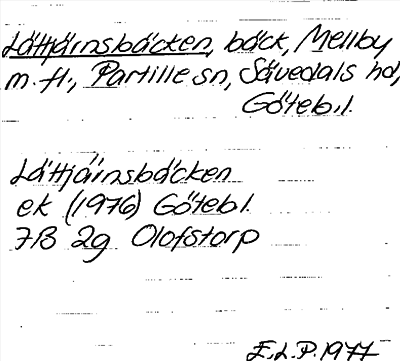 Lättjärnsbäcken, bäck, Mellby
m. fl., Partille sn, Sävedals hd,
Göteb. l.
Lättjärnsbäcken
ek (1976) Göteb l.
7B 2g Olofstorp
E.L.P. 1977